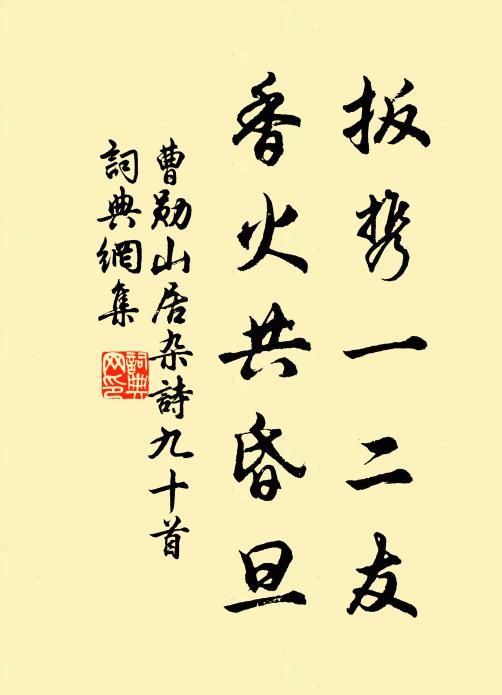 扳携一二友
香火共昏旦
曹勋山居杂詩九十首
詞典網集
詞典网印